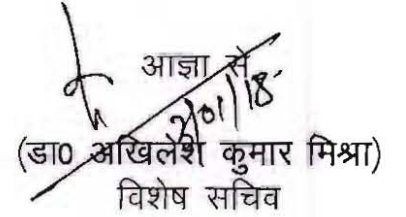 आज्ञा से
(डा0 अखिलेश कुमार मिश्रा)
विशेष सचिव